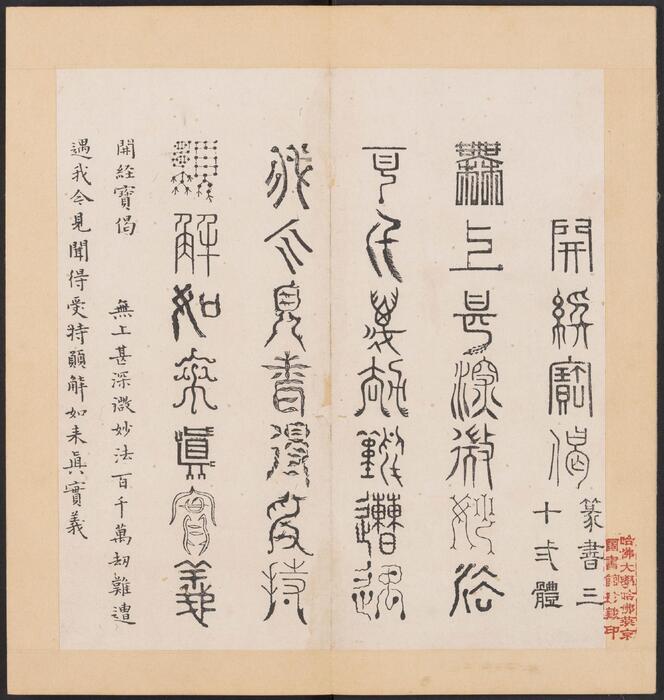 開經寶偈
篆書三
十弍體
哈佛大學哈佛燕京
圖書館珍藏印
無上甚深微妙法
百千萬劫難遭遇
我今見聞得受持
願解如來眞實義
開経寶偈 無上甚深微妙法百千萬劫難遭
遇我今見聞得受持願解如来眞實義